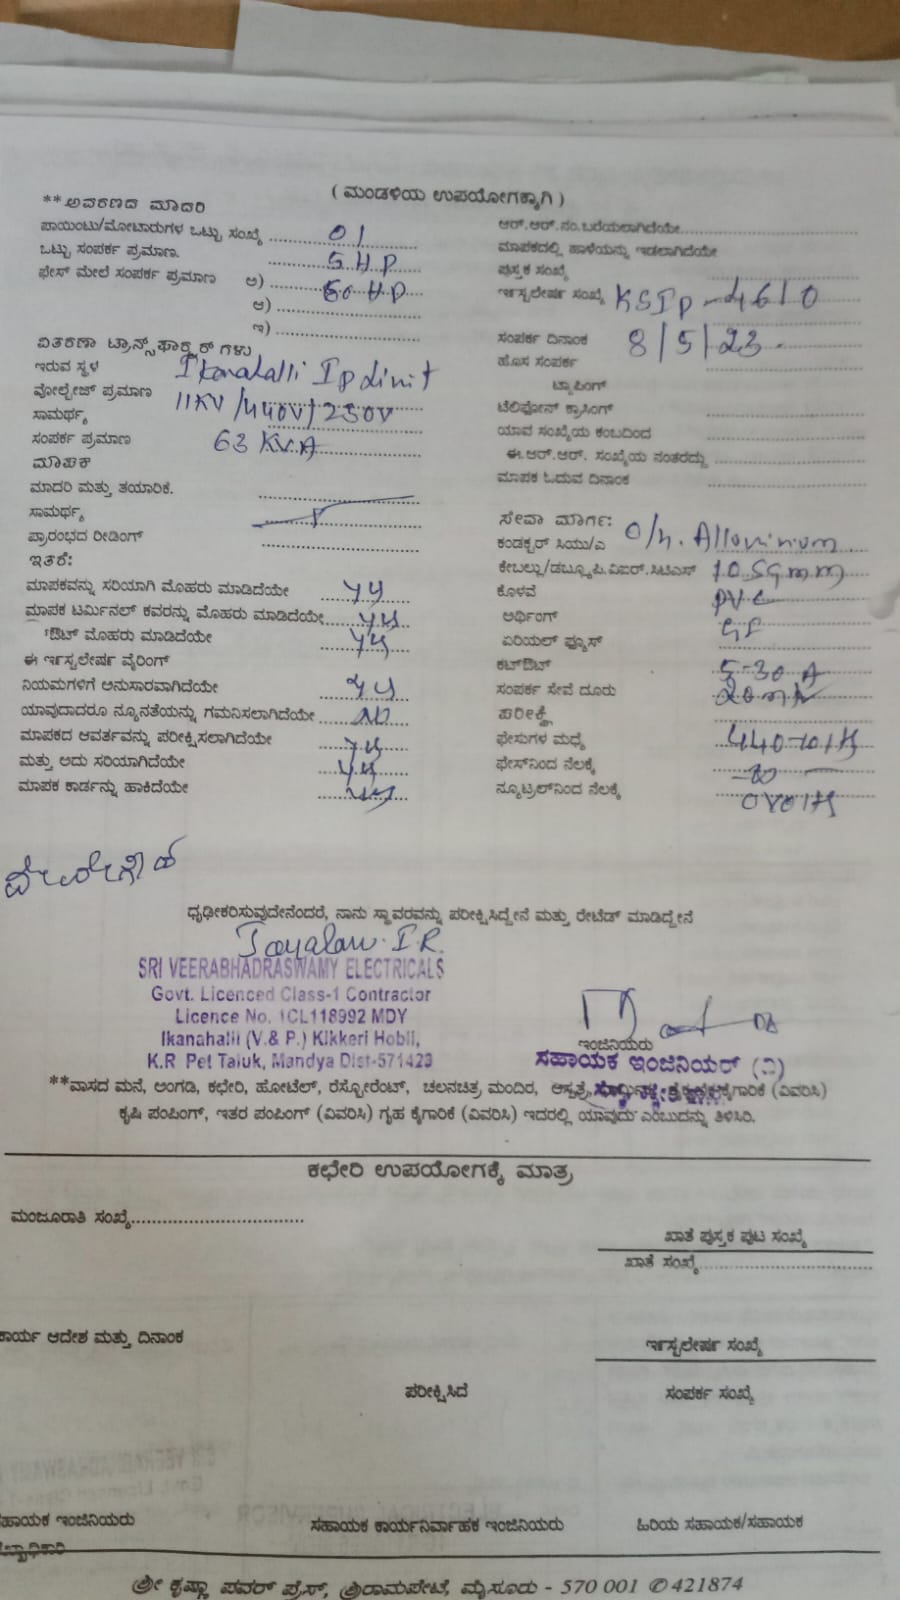 ( ಮಂಡಳಿಯ ಉಪಯೋಗಕ್ಕಾಗಿ )
**ಅವರಣದ ಮಾದರಿ
ಪಾಯಿಂಟು/ಮೋಟಾರುಗಳ ಒಟ್ಟು ಸಂಖ್ಯೆ 01
ಒಟ್ಟು ಸಂಪರ್ಕ ಪ್ರಮಾಣ. 5 H.P
ಫೇಸ್ ಮೇಲೆ ಸಂಪರ್ಕ ಪ್ರಮಾಣ ಅ) H.P
ಆ)
ಇ)
ವಿತರಣಾ ಟ್ರಾನ್ಸ್‌ಫಾರ್ಮರ್ ಗಳು
ಇರುವ ಸ್ಥಳ
ವೋಲ್ಟೇಜ್ ಪ್ರಮಾಣ 11KV/440V/250V
ಸಾಮರ್ಥ್ಯ
ಸಂಪರ್ಕ ಪ್ರಮಾಣ 63 KVA
ಮಾಪಕ
ಮಾದರಿ ಮತ್ತು ತಯಾರಿಕೆ.
ಸಾಮರ್ಥ್ಯ
ಪ್ರಾರಂಭದ ರೀಡಿಂಗ್
ಇತರೆ:
ಮಾಪಕವನ್ನು ಸರಿಯಾಗಿ ಮೊಹರು ಮಾಡಿದೆಯೇ
ಮಾಪಕ ಟರ್ಮಿನಲ್ ಕವರನ್ನು ಮೊಹರು ಮಾಡಿದೆಯೇ
ಔಟ್ ಮೊಹರು ಮಾಡಿದೆಯೇ
ಈ ಇನ್ಸ್ಟಲೇಷನ್ ವೈರಿಂಗ್
ನಿಯಮಗಳಿಗೆ ಅನುಸಾರವಾಗಿದೆಯೇ
ಯಾವುದಾದರೂ ನ್ಯೂನತೆಯನ್ನು ಗಮನಿಸಲಾಗಿದೆಯೇ
ಮಾಪಕದ ಆವರ್ತವನ್ನು ಪರೀಕ್ಷಿಸಲಾಗಿದೆಯೇ
ಮತ್ತು ಅದು ಸರಿಯಾಗಿದೆಯೇ
ಮಾಪಕ ಕಾರ್ಡನ್ನು ಹಾಕಿದೆಯೇ
ಆರ್.ಆರ್.ನಂ.ಬರೆಯಲಾಗಿದೆಯೇ
ಮಾಪಕದಲ್ಲಿ ಹಾಳೆಯನ್ನು ಇಡಲಾಗಿದೆಯೇ
ಪುಸ್ತಕ ಸಂಖ್ಯೆ
ಇನ್ಸ್ಟಲೇಷನ್ ಸಂಖ್ಯೆ KSIP-4610
ಸಂಪರ್ಕ ದಿನಾಂಕ 8/5/23
ಹೊಸ ಸಂಪರ್ಕ
ಟ್ಯಾಪಿಂಗ್
ಟೆಲಿಫೋನ್ ಕ್ರಾಸಿಂಗ್
ಯಾವ ಸಂಖ್ಯೆಯ ಕಂಬದಿಂದ
ಈ.ಆರ್.ಆರ್. ಸಂಖ್ಯೆಯ ನಂತರದ್ದು
ಮಾಪಕ ಓದುವ ದಿನಾಂಕ
ಸೇವಾ ಮಾರ್ಗ:
ಕಂಡಕ್ಟರ್ ಸಿಯು/ಎ O/H. Alluminium
ಕೇಬಲ್ಲು/ಡಬ್ಲ್ಯೂಪಿ.ವಿಐರ್.ಸಿಟಿಎಸ್ 10 Sqmm
ಕೊಳವೆ PVC
ಅರ್ಥಿಂಗ್ GI
ಏರಿಯಲ್ ಫ್ಯೂಸ್
ಕಟ್‌ಔಟ್ 5-30 A
ಸಂಪರ್ಕ ಸೇವೆ ದೂರು
ಪರೀಕ್ಷೆ
ಫೇಸುಗಳ ಮಧ್ಯೆ
ಫೇಸ್‌ನಿಂದ ನೆಲಕ್ಕೆ
ನ್ಯೂಟ್ರಲ್‌ನಿಂದ ನೆಲಕ್ಕೆ
ಧೃಢೀಕರಿಸುವುದೇನೆಂದರೆ, ನಾನು ಸ್ಥಾವರವನ್ನು ಪರೀಕ್ಷಿಸಿದ್ದೇನೆ ಮತ್ತು ರೇಟೆಡ್ ಮಾಡಿದ್ದೇನೆ
SRI VEERABHADRASWAMY ELECTRICALS
Govt. Licenced Class-1 Contractor
Licence No. 1CL118992 MDY
Ikanahalli (V.& P.) Kikkeri Hobli,
K.R Pet Taluk, Mandya Dist-571423
ಇಂಜಿನಿಯರು
ಸಹಾಯಕ ಇಂಜಿನಿಯರ್ (ವಿ)
**ವಾಸದ ಮನೆ, ಅಂಗಡಿ, ಕಛೇರಿ, ಹೋಟೆಲ್, ರೆಸ್ಟೋರೆಂಟ್, ಚಲನಚಿತ್ರ ಮಂದಿರ, ಆಸ್ಪತ್ರೆ, ಕೈಗಾರಿಕೆ (ವಿವರಿಸಿ)
ಕೃಷಿ ಪಂಪಿಂಗ್, ಇತರ ಪಂಪಿಂಗ್ (ವಿವರಿಸಿ) ಗೃಹ ಕೈಗಾರಿಕೆ (ವಿವರಿಸಿ) ಇದರಲ್ಲಿ ಯಾವುದು ಎಂಬುದನ್ನು ತಿಳಿಸಿರಿ.
ಕಛೇರಿ ಉಪಯೋಗಕ್ಕೆ ಮಾತ್ರ
ಮಂಜೂರಾತಿ ಸಂಖ್ಯೆ
ಖಾತೆ ಪುಸ್ತಕ ಪುಟ ಸಂಖ್ಯೆ
ಖಾತೆ ಸಂಖ್ಯೆ
ಕಾರ್ಯ ಆದೇಶ ಮತ್ತು ದಿನಾಂಕ
ಇನ್ಸ್ಟಲೇಷನ್ ಸಂಖ್ಯೆ
ಪರೀಕ್ಷಿಸಿದೆ
ಸಂಪರ್ಕ ಸಂಖ್ಯೆ
ಸಹಾಯಕ ಇಂಜಿನಿಯರು
ಸಹಾಯಕ ಕಾರ್ಯನಿರ್ವಾಹಕ ಇಂಜಿನಿಯರು
ಹಿರಿಯ ಸಹಾಯಕ/ಸಹಾಯಕ
ಶ್ರೀ ಕೃಷ್ಣಾ ಪವರ್ ಪ್ರೆಸ್, ಶ್ರೀರಾಮಪೇಟೆ, ಮೈಸೂರು - 570 001 ✆ 421874